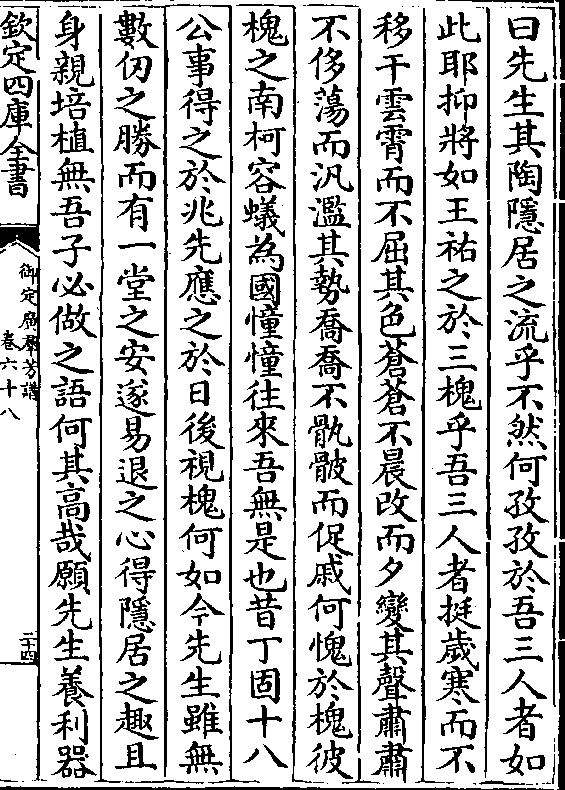 曰先生其陶隱居之流乎不然何孜孜於吾三人者如
此耶抑將如王祐之於三槐乎吾三人者挺歲寒而不
移干雲霄而不屈其色蒼蒼不晨改而夕變其聲肅肅
不侈蕩而汎濫其勢喬喬不骩骳而促戚何愧於槐彼
槐之南柯容蟻為國憧憧往來吾無是也昔丁固十八
公事得之於兆先應之於日後視槐何如今先生雖無
數仞之勝而有一堂之安遂易退之心得隱居之趣且
身親培植無吾子必做之語何其高哉願先生養利器
欽定四庫全書
御定廣羣芳譜
卷六十八
二十四